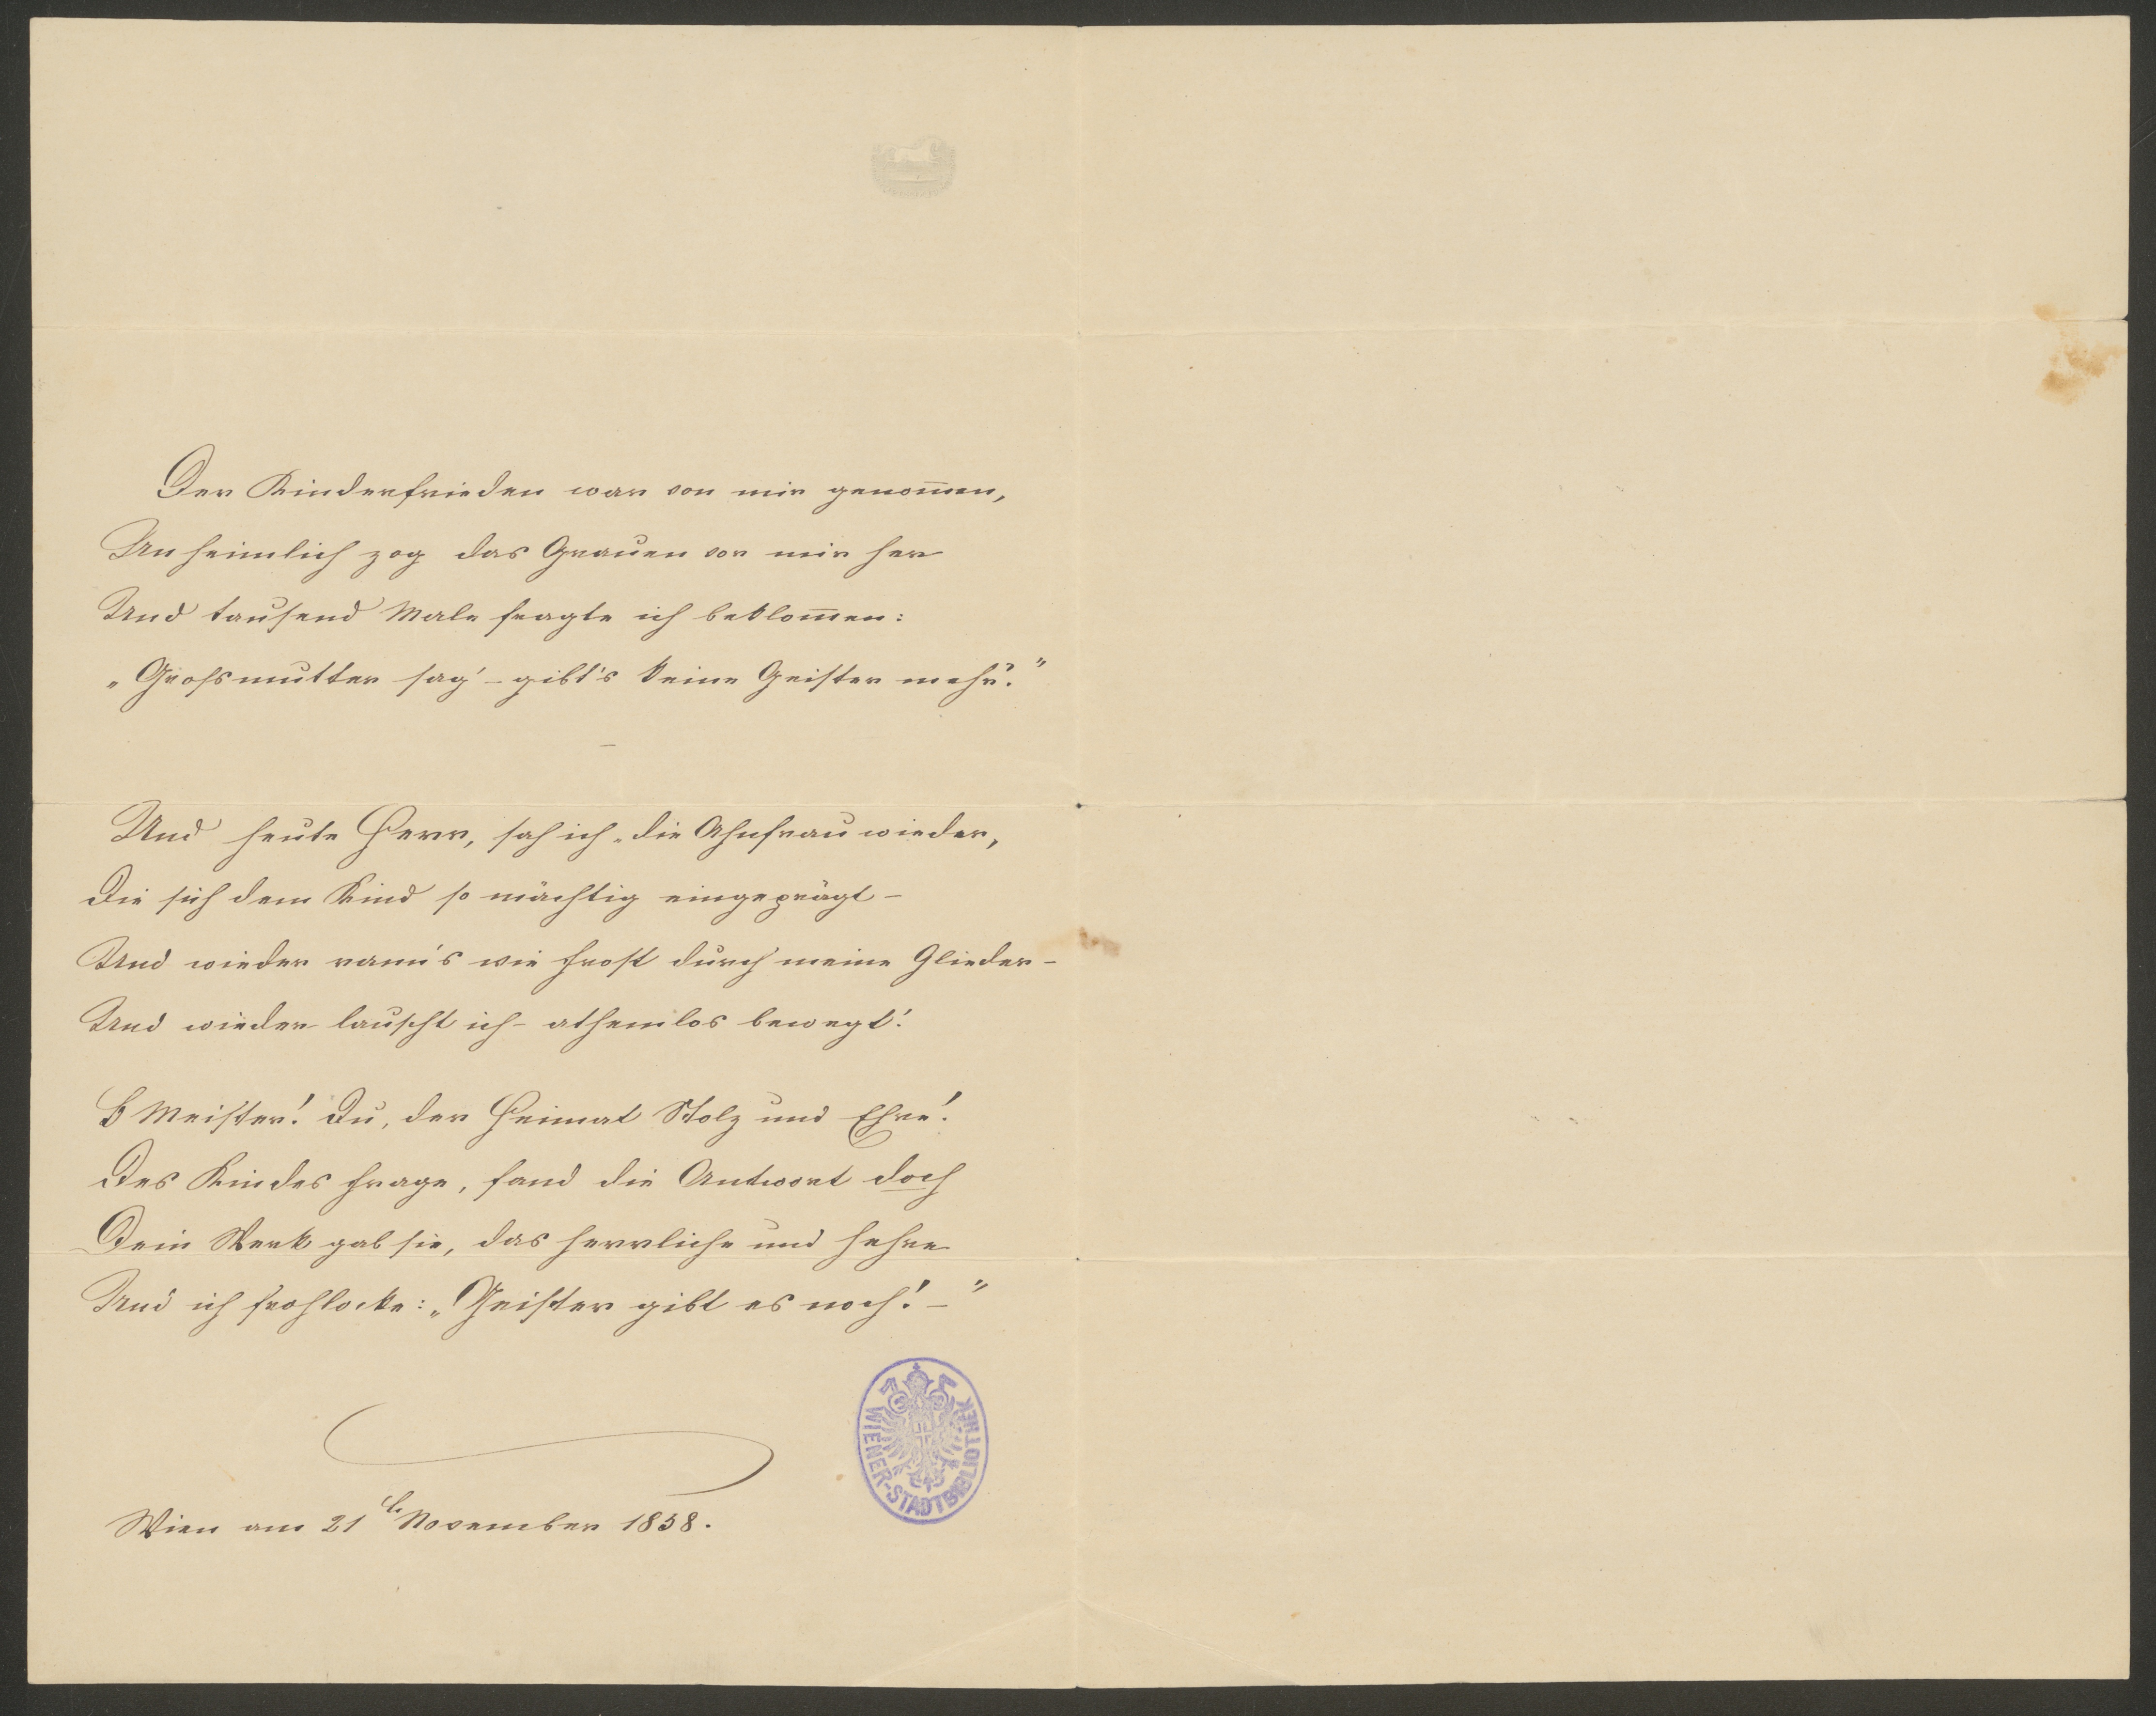 Der Kinderfrieden war von mir genom̅en,
Unheimlich zog das Grauen vor mir her
Und tausend Male fragte ich beklom̅en:
„Großmutter sag' – gibt's keine Geister mehr?"
–
Und heute Herr, sah ich „die Ahnfrau wieder,
Die sich dem Kind so mächtig eingeprägt –
Und wieder rann's wie Frost durch meine Glieder –
Und wieder lauscht ich – athemlos bewegt!
O Meister! Du, der Heimat Stolz und Ehre!
Des Kindes Frage, fand die Antwort doch
Dein Werk gab sie, das herrliche und hehre
Und ich frohlocke: „Geister gibt es noch! –"
WIENER-STADTBIBLIOTHEK
Wien am 21 November 1858.